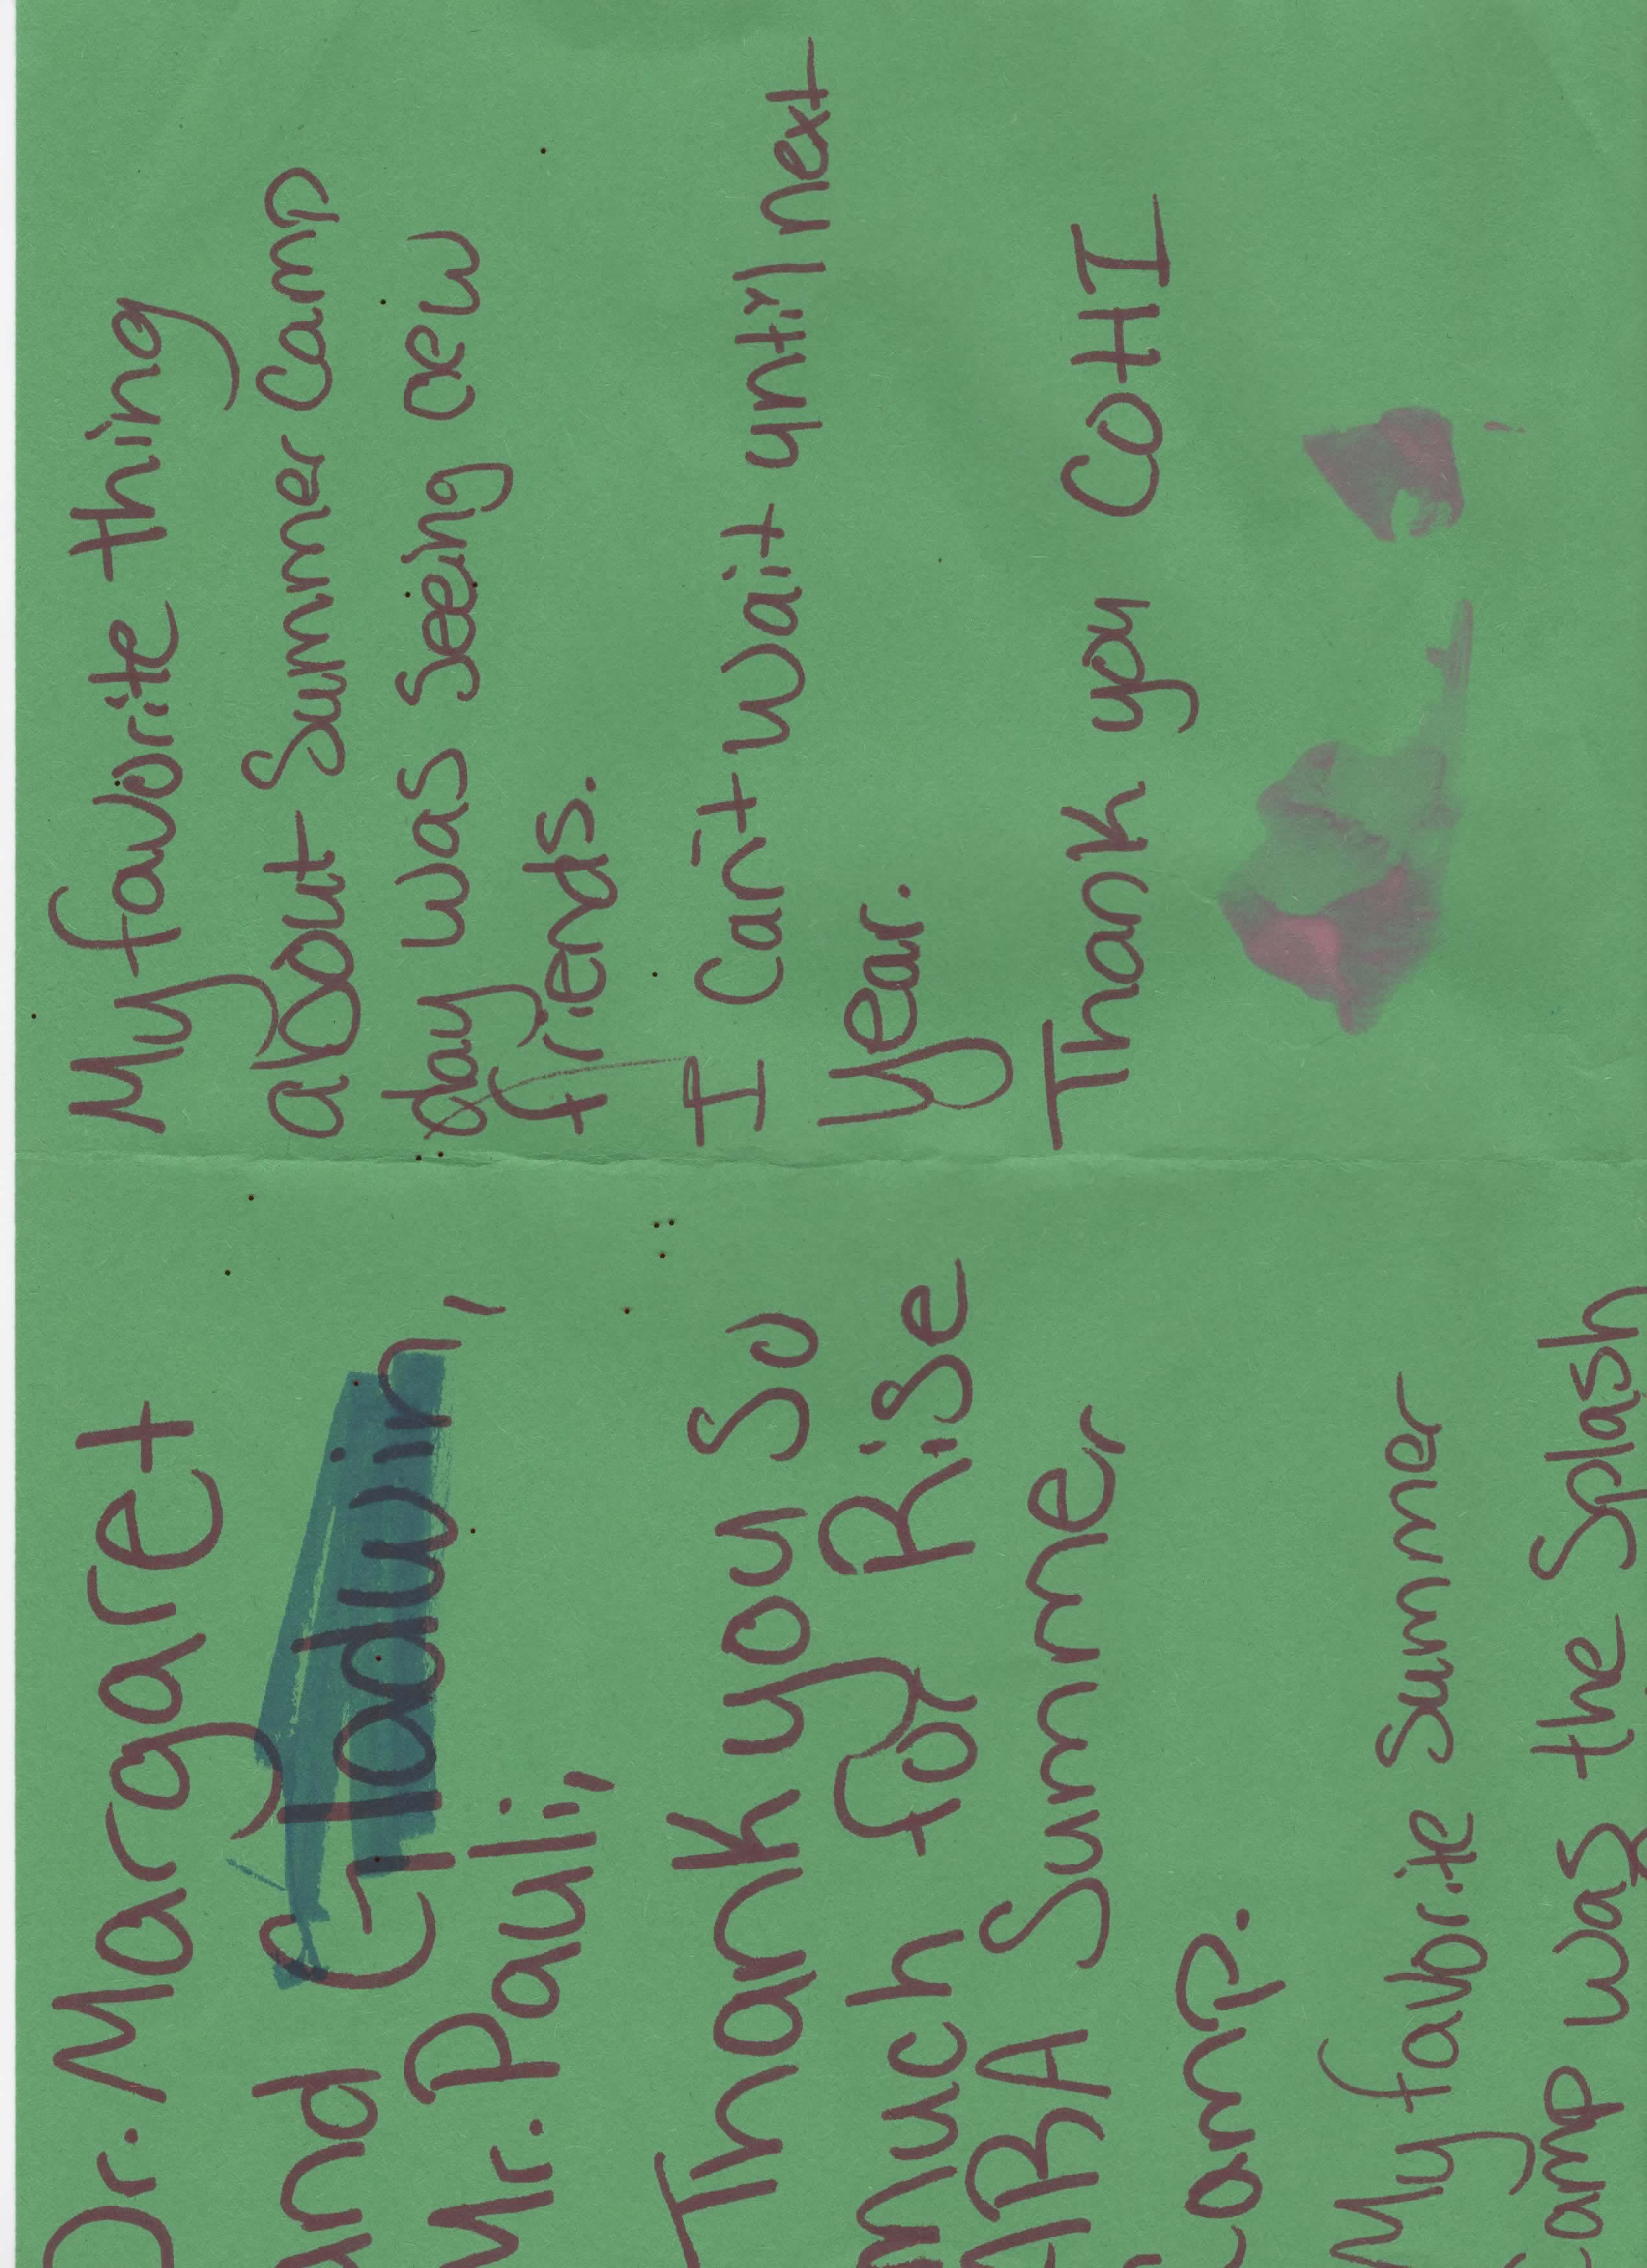 Dr. Margaret
and Gladwin,
Mr. Pauli,
Thank you So
much for Rise
ABA Summer
Camp.
My favorite Summer
Camp was the Splash
My favorite thing
about Summer Camp
day was seeing new
friends.
I can't wait until next
year.
Thank you COHI